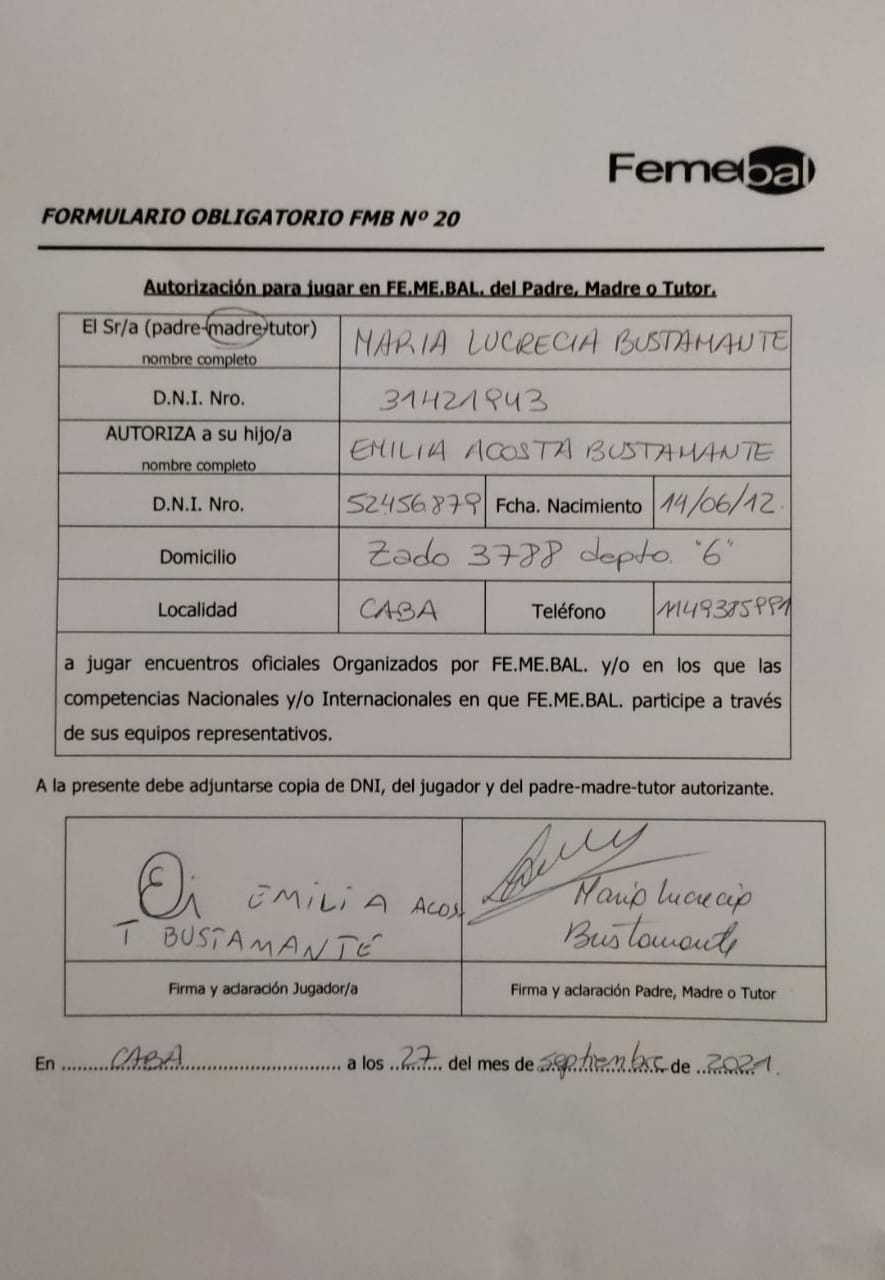 Femebal
FORMULARIO OBLIGATORIO FMB Nº 20
Autorización para jugar en FE.ME.BAL. del Padre, Madre o Tutor.
El Sr/a (padre-madre-tutor)
nombre completo
MARIA LUCRECIA BUSTAMANTE
D.N.I. Nro.
31421943
AUTORIZA a su hijo/a
nombre completo
EMILIA ACOSTA BUSTAMANTE
D.N.I. Nro.
52456879
Fcha. Nacimiento
14/06/12
Domicilio
3788 depto. "6"
Localidad
CABA
Teléfono
a jugar encuentros oficiales Organizados por FE.ME.BAL. y/o en los que las
competencias Nacionales y/o Internacionales en que FE.ME.BAL. participe a través
de sus equipos representativos.
A la presente debe adjuntarse copia de DNI, del jugador y del padre-madre-tutor autorizante.
EMILIA ACOS
T BUSTAMANTE
Maria Lucrecia
Bustamante
Firma y aclaración Jugador/a
Firma y aclaración Padre, Madre o Tutor
En ......... CABA ......... a los ..27.. del mes de septiembre de ..2021.